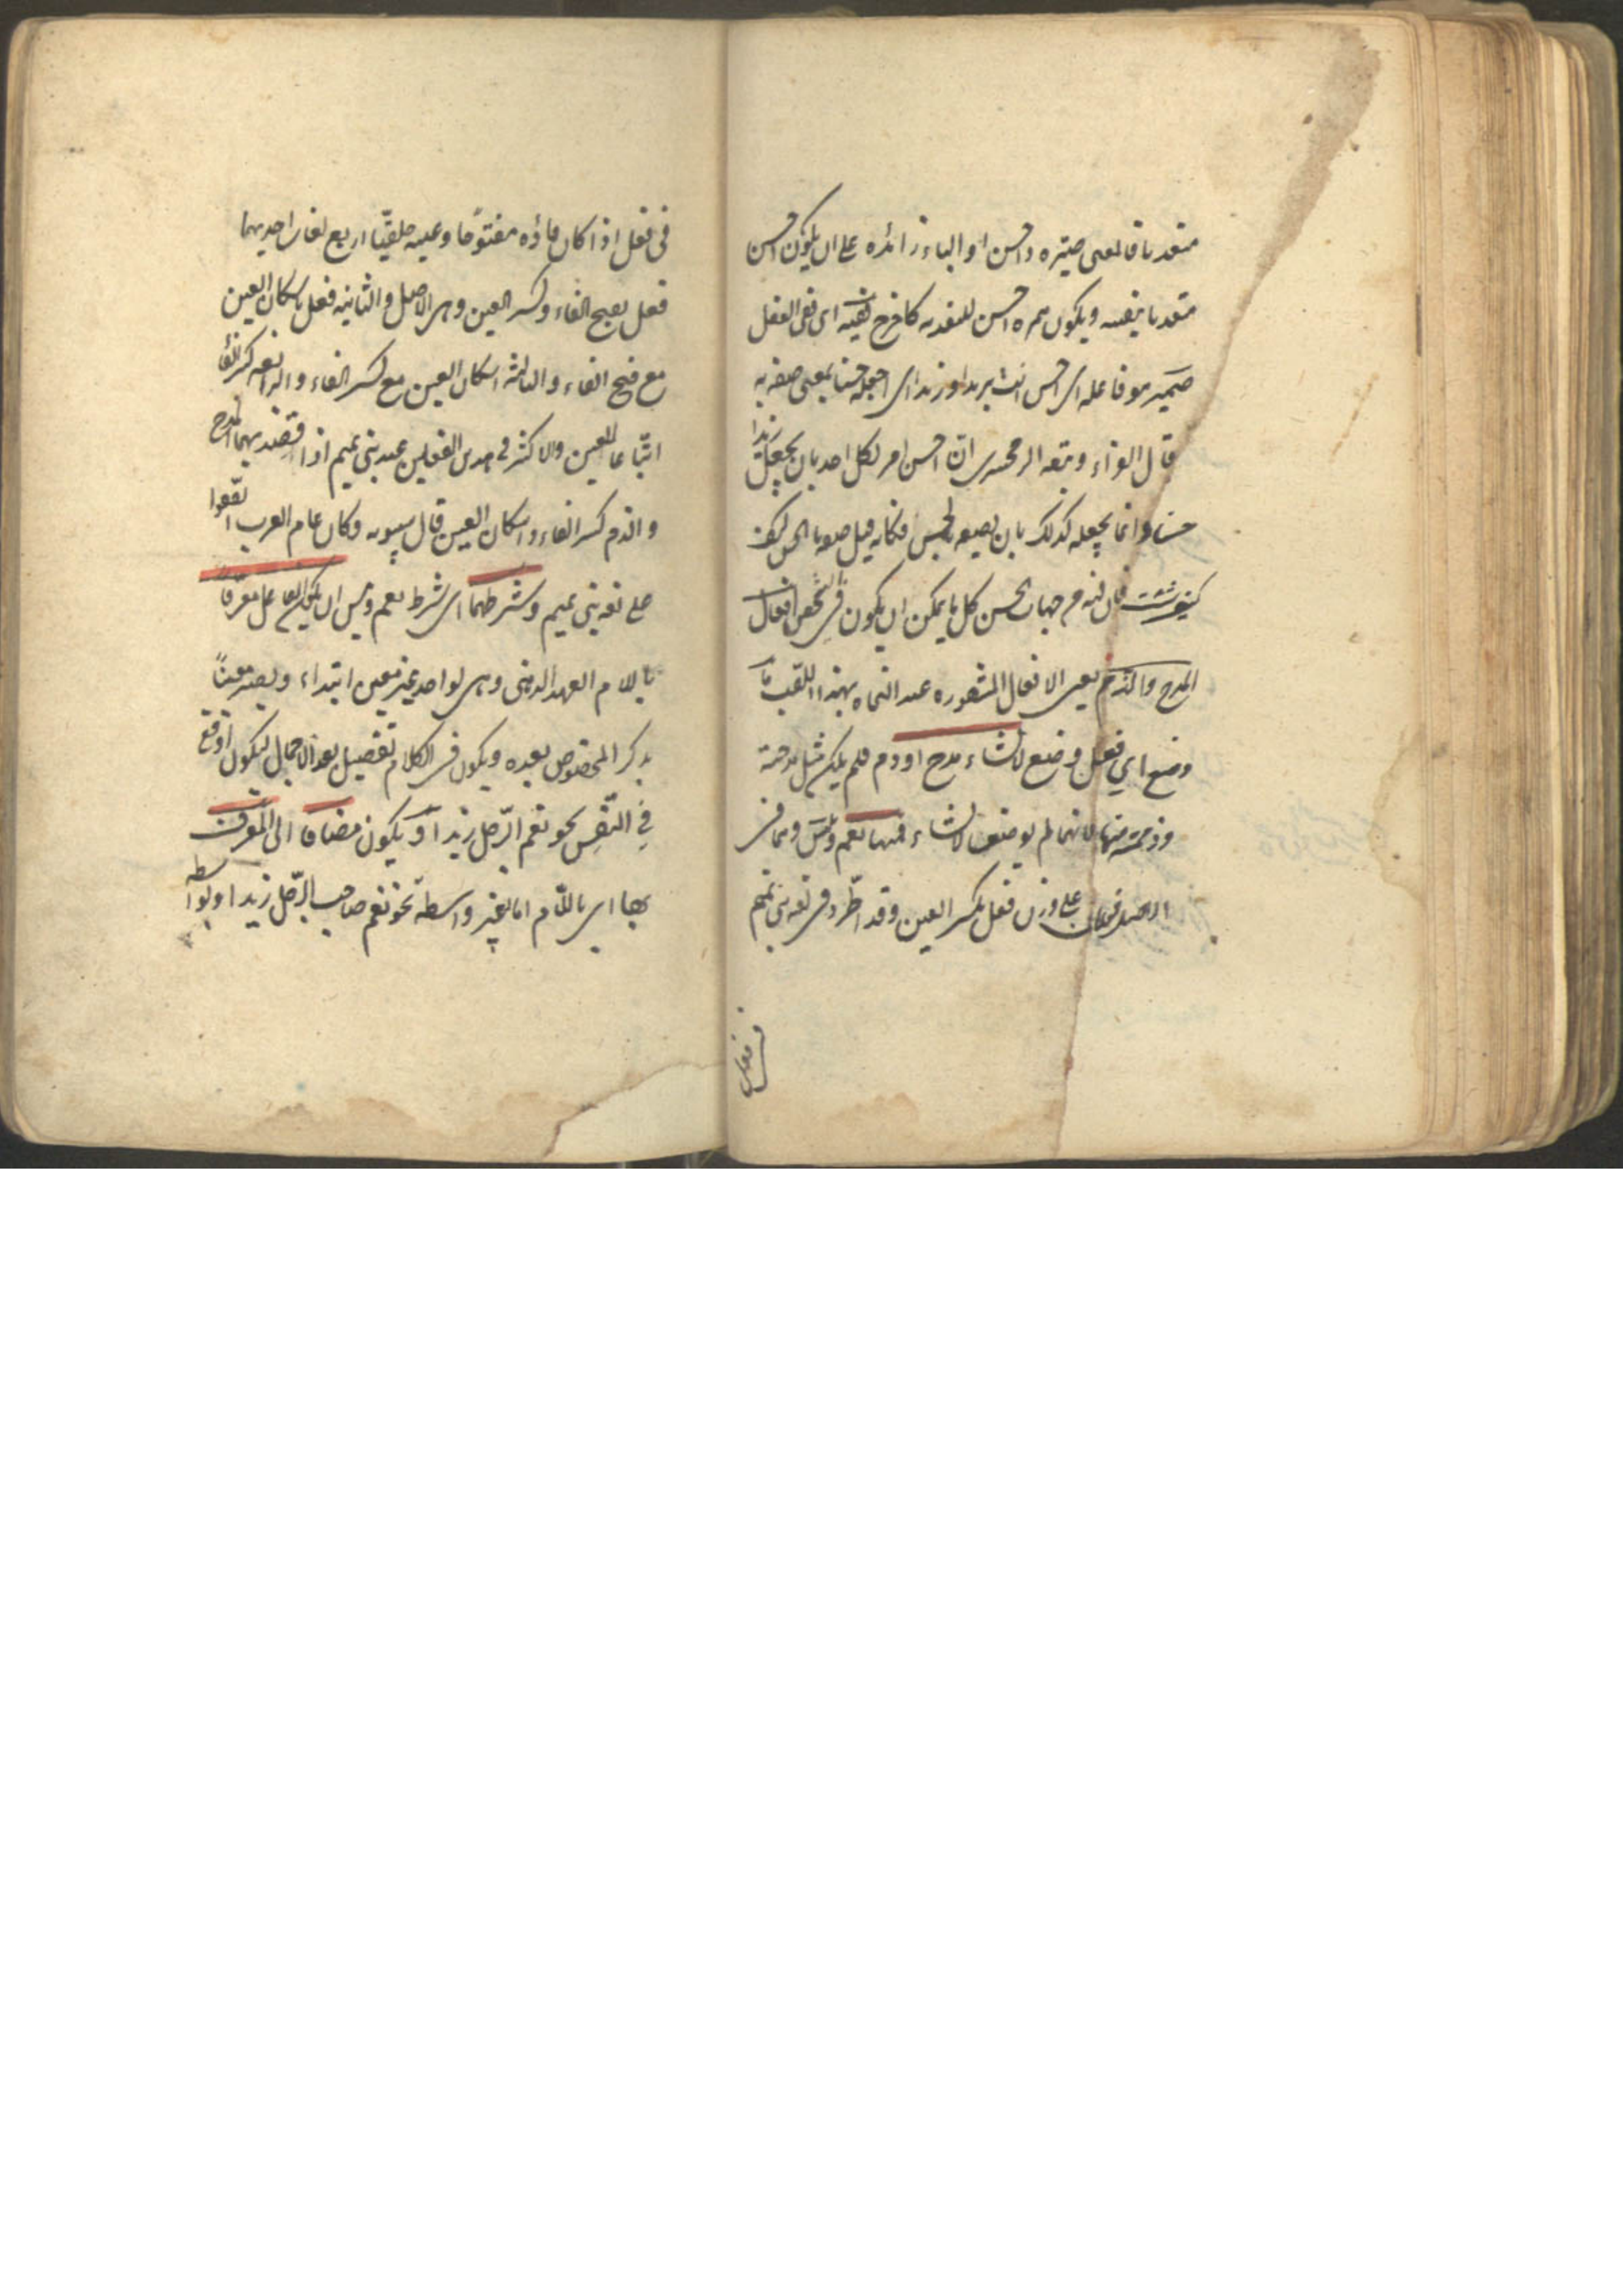 متعديا فالمعنى صيّره ذا حسن او الباء زائدة على ان يكون احسن
متعديا بنفسه ويكون همزة احسن للتعدية كاخرج ففيه اى ففى الفعل
ضمير هو فاعله اى احسن انت بزيد او زيدا اى اجعله حسنا بمعنى صفه به
قال الفراء وتبعه الزمخشرى انّ احسن امر لكل احد بان يجعل زيدا
حسنا وانما يجعله كذلك بان يصفه بالحسن فكانه قيل صفه بالحسن كيف
شئت فان فيه من جهات الحسن كل ما يمكن ان يكون فى شخص افعال
المدح والذم يعنى الافعال المشهورة عند النحاة بهذا اللقب ما
وضع اي فعل وضع لانشاء مدح او ذم فلم يكن مثل مدحته
وذممته منها لانهما لم يوضعا لانشاء فمنها نعم وبئس وهما فى
الاصل فعلان على وزن فعل بكسر العين وقد اطّرد فى لغة بنى تميم
فى فعل
فى فعل اذا كان فاؤه مفتوحا وعينه حلقيّا اربع لغات احديهما
فعل بفتح الفاء وكسر العين وهى الاصل والثانية فعل باسكان العين
مع فتح الفاء والثالثة اسكان العين مع كسر الفاء والرابعة كسر الفاء
اتّباعا للعين والاكثر فى هذين الفعلين عند بنى تميم اذا قصد بهما المدح
والذم كسر الفاء واسكان العين قال سيبويه وكان عام العرب اتفقوا
على لغة بنى تميم وشرطهما اى شرط نعم وبئس ان يكون الفاعل معرفا
باللام العهد الذهنى وهى لواحد غير معين ابتداء ويصير معينا
بذكر المخصوص بعده ويكون فى الكلام تفصيل بعد الاجمال ليكون اوقع
في النّفس نحو نعم الرّجل زيد او يكون مضافا الى المعرف
بها اى باللّام اما بغير واسطة نحو نعم صاحب الرّجل زيد او بواسطة